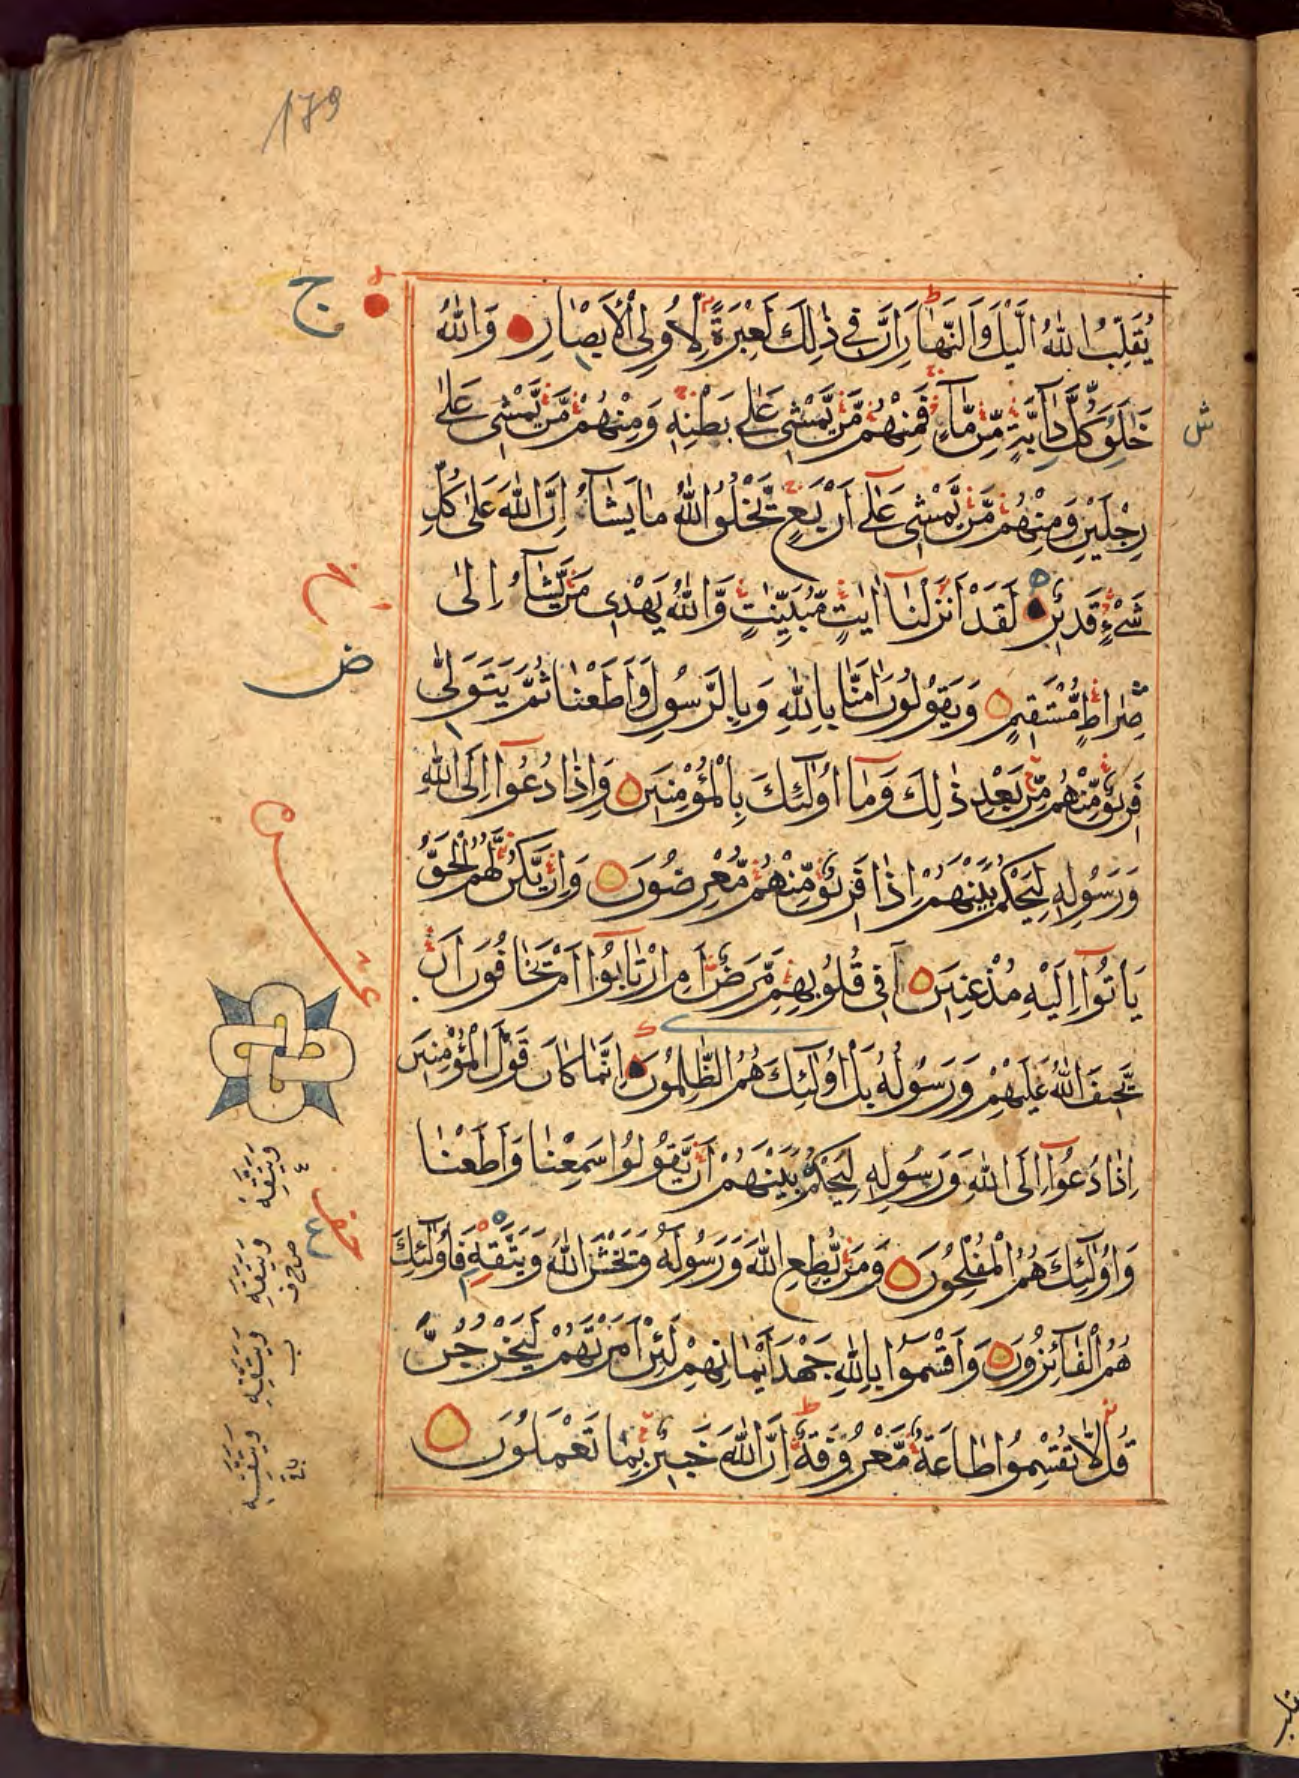 179
يُقَلِّبُ اللّٰهُ الَّيْلَ وَالنَّهَارَ اِنَّ فِي ذٰلِكَ لَعِبْرَةً لِاُولِى الْاَبْصَارِ وَاللّٰهُ
ج
خٰلِقُ كُلِّ دَآبَّةٍ مِّنْ مَّآءٍ فَمِنْهُمْ مَّنْ يَّمْشِى عَلٰى بَطْنِهٖ وَمِنْهُمْ مَّنْ يَّمْشِى عَلٰى
رِجْلَيْنِ وَمِنْهُمْ مَّنْ يَّمْشِى عَلٰى اَرْبَعٍ يَخْلُقُ اللّٰهُ مَا يَشَآءُ اِنَّ اللّٰهَ عَلٰى كُلِّ
شَىْءٍ قَدِيْرٌ لَقَدْ اَنْزَلْنَا اٰيٰتٍ مُّبَيِّنٰتٍ وَّاللّٰهُ يَهْدِى مَنْ يَّشَآءُ اِلٰى
ض
صِرَاطٍ مُّسْتَقِيْمٍ وَيَقُوْلُوْنَ اٰمَنَّا بِاللّٰهِ وَبِالرَّسُوْلِ وَاَطَعْنَا ثُمَّ يَتَوَلّٰى
فَرِيْقٌ مِّنْهُمْ مِّنْ بَعْدِ ذٰلِكَ وَمَا اُولٰٓئِكَ بِالْمُؤْمِنِيْنَ وَاِذَا دُعُوْا اِلَى اللّٰهِ
وَرَسُوْلِهٖ لِيَحْكُمَ بَيْنَهُمْ اِذَا فَرِيْقٌ مِّنْهُمْ مُّعْرِضُوْنَ وَاِنْ يَّكُنْ لَّهُمُ الْحَقُّ
يَاْتُوْا اِلَيْهِ مُذْعِنِيْنَ اَفِى قُلُوْبِهِمْ مَّرَضٌ اَمِ ارْتَابُوْا اَمْ يَخَافُوْنَ اَنْ
يَّحِيْفَ اللّٰهُ عَلَيْهِمْ وَرَسُوْلُهٗ بَلْ اُولٰٓئِكَ هُمُ الظّٰلِمُوْنَ اِنَّمَا كَانَ قَوْلَ الْمُؤْمِنِيْنَ
اِذَا دُعُوْا اِلَى اللّٰهِ وَرَسُوْلِهٖ لِيَحْكُمَ بَيْنَهُمْ اَنْ يَّقُوْلُوْا سَمِعْنَا وَاَطَعْنَا
وَاُولٰٓئِكَ هُمُ الْمُفْلِحُوْنَ وَمَنْ يُّطِعِ اللّٰهَ وَرَسُوْلَهٗ وَيَخْشَ اللّٰهَ وَيَتَّقْهِ فَاُولٰٓئِكَ
هُمُ الْفَآئِزُوْنَ وَاَقْسَمُوْا بِاللّٰهِ جَهْدَ اَيْمَانِهِمْ لَئِنْ اَمَرْتَهُمْ لَيَخْرُجُنَّ
قُلْ لَّا تُقْسِمُوْا طَاعَةٌ مَّعْرُوْفَةٌ اِنَّ اللّٰهَ خَبِيْرٌ بِمَا تَعْمَلُوْنَ